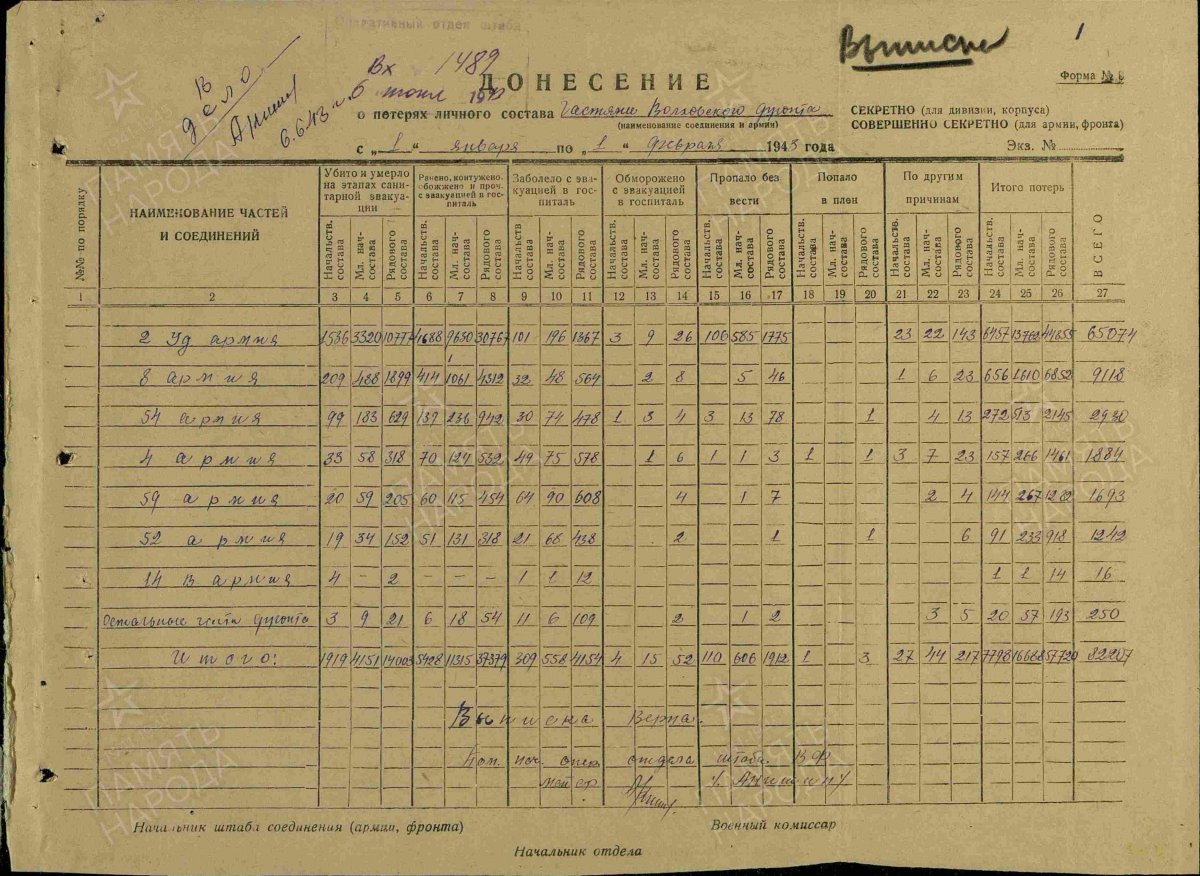 Оперативный отдел штаба
Выписка
1
Вх 1489
6 июня 1943
В дело
6.6.43 г.
ДОНЕСЕНИЕ
Форма № 8
о потерях личного состава Частями Волховского фронта
(наименование соединения и армии)
СЕКРЕТНО (для дивизии, корпуса)
СОВЕРШЕННО СЕКРЕТНО (для армии, фронта)
с „1“ января по „1“ февраля 1943 года
Экз. №
№№ по порядку
НАИМЕНОВАНИЕ ЧАСТЕЙ И СОЕДИНЕНИЙ
Убито и умерло на этапах санитарной эвакуации
Ранено, контужено, обожжено и проч. с эвакуацией в госпиталь
Заболело с эвакуацией в госпиталь
Обморожено с эвакуацией в госпиталь
Пропало без вести
Попало в плен
По другим причинам
Итого потерь
ВСЕГО
Начальств. состава Мл. нач-состава Рядового состава Начальств. состава Мл. нач-состава Рядового состава Начальств. состава Мл. нач-состава Рядового состава Начальств. состава Мл. нач-состава Рядового состава Начальств. состава Мл. нач-состава Рядового состава Начальств. состава Мл. нач-состава Рядового состава Начальств. состава Мл. нач-состава Рядового состава Начальств. состава Мл. нач-состава Рядового состава
1 2 3 4 5 6 7 8 9 10 11 12 13 14 15 16 17 18 19 20 21 22 23 24 25 26 27
2 Уд армия 1536 3320 10777 4688 9630 30767 101 196 1367 3 9 26 106 585 1775 23 22 143 6457 13762 44855 65074
8 армия 209 488 1899 414 1061 4312 32 48 564 2 8 5 46 1 6 23 656 1610 6852 9118
54 армия 99 183 629 139 236 942 30 74 478 1 3 4 3 13 78 1 4 13 272 513 2145 2930
4 армия 33 58 318 70 124 532 49 75 578 1 6 1 1 3 1 1 3 7 23 157 266 1461 1884
59 армия 20 59 205 60 115 454 64 90 608 4 1 7 2 4 144 267 1282 1693
52 армия 19 34 152 51 131 318 21 68 438 2 1 1 6 91 233 918 1242
14 В армия 4 – 2 – – – 1 1 12 1 1 14 16
Остальные части фронта 3 9 21 6 18 54 11 6 109 2 1 2 3 5 20 37 193 250
Итого: 1919 4151 14003 5428 11315 37379 309 558 4154 4 15 52 110 606 1912 1 3 27 44 217 7798 16688 57720 82207
Выписка верна.
Пом. нач. опер. отдела штаба ВФ
майор
Начальник штаба соединения (армии, фронта)
Военный комиссар
Начальник отдела
ПАМЯТЬ НАРОДА